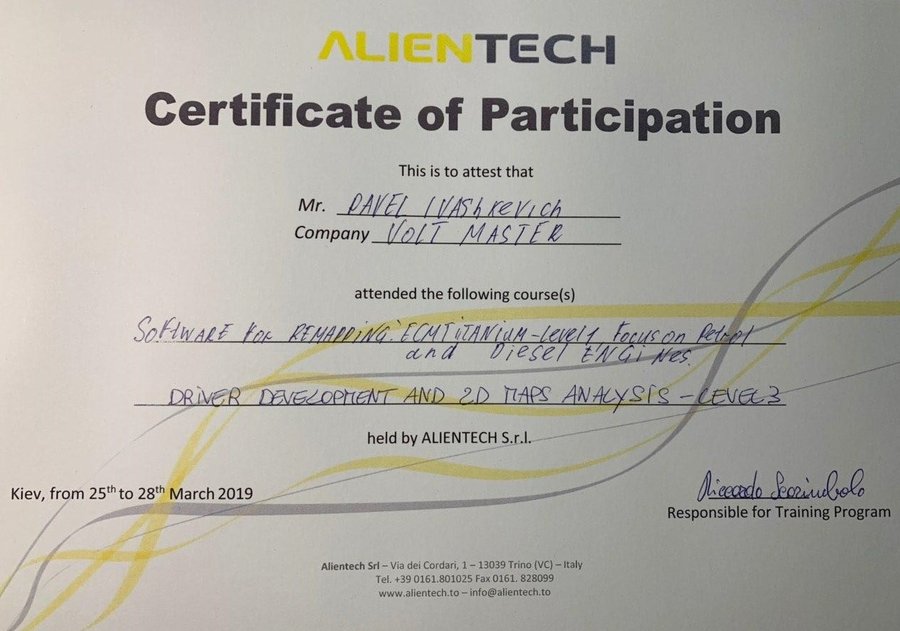 ALIENTECH
Certificate of Participation
This is to attest that
Mr. PAVEL IVAShkevich
Company VOLT MASTER
attended the following course(s)
SOFTWARE FOR REMAPPING: ECMTitanium-Level1 Focus on Petrol
and Diesel ENGINes.
DRIVER DEVELOPMENT AND 2D MAPS ANALYSIS - LEVEL 3
held by ALIENTECH S.r.l.
Kiev, from 25th to 28th March 2019
Riccardo
Responsible for Training Program
Alientech Srl – Via dei Cordari, 1 – 13039 Trino (VC) – Italy
Tel. +39 0161.801025 Fax 0161. 828099
www.alientech.to – info@alientech.to